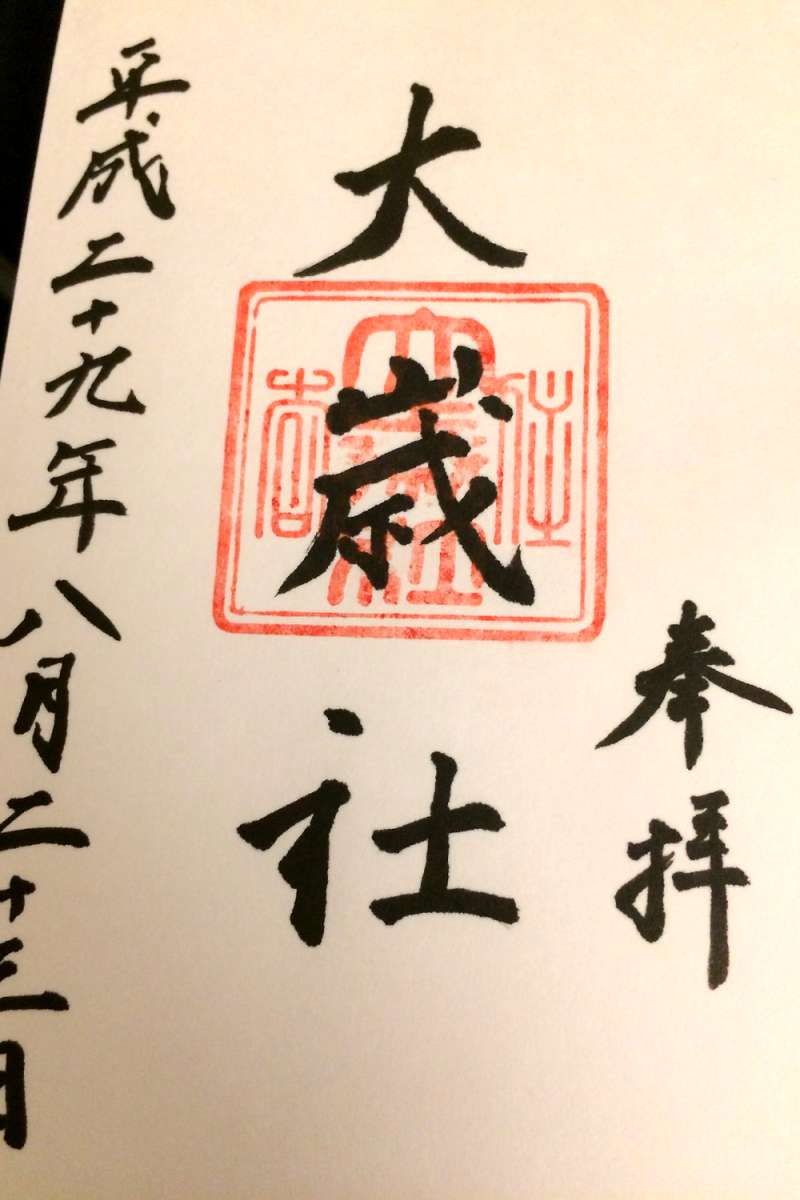 奉拝
大歳社
平成二十九年八月二十三日